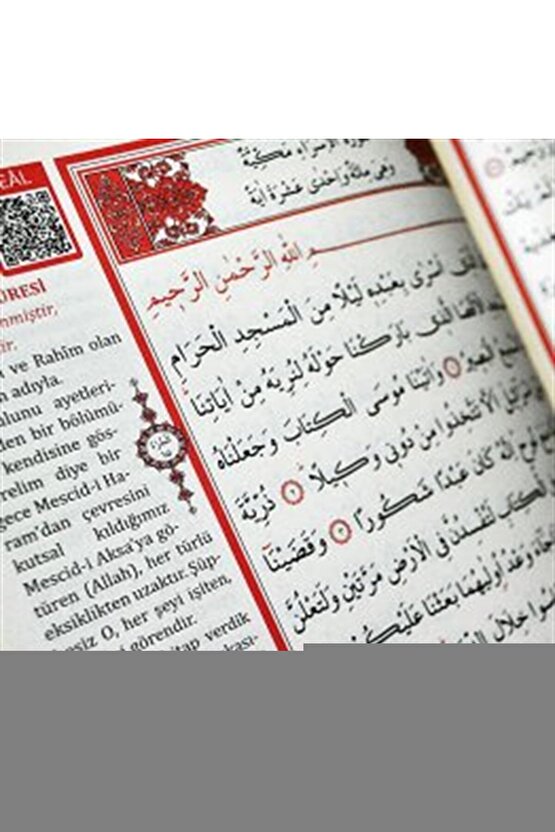 EÂL
ÛRESİ
nmiştir,
ir.
ve Rahîm olan
adıyla.
ulunu ayetleri-
den bir bölümü-
kendisine gös-
relim diye bir
gece Mescid-i Ha-
ram'dan çevresini
kutsal kıldığımız
Mescid-i Aksa'ya gö-
türen (Allah), her türlü
eksiklikten uzaktır. Şüp-
hesiz O, her şeyi işiten,
görendir.
itap verdik
الْاِسْرَاءِ مَكِّيَّةٌ
وَهِىَ مِائَةٌ وَاِحْدٰى عَشْرَةَ اٰيَةً
اللّٰهِ الرَّحْمٰنِ الرَّحٖيمِ
اَسْرٰى بِعَبْدِهٖ لَيْلًا مِنَ الْمَسْجِدِ الْحَرَامِ
الَّذٖى بَارَكْنَا حَوْلَهُ لِنُرِيَهُ مِنْ اٰيَاتِنَا
الْبَصٖيرُ ١ وَاٰتَيْنَا مُوسَى الْكِتَابَ وَجَعَلْنَاهُ
اَلَّا تَتَّخِذُوا مِنْ دُونٖى وَكٖيلًا ٢ ذُرِّيَّةَ
نُوحٍ اِنَّهُ كَانَ عَبْدًا شَكُورًا ٣ وَقَضَيْنَا
الْكِتَابِ لَتُفْسِدُنَّ فِى الْاَرْضِ مَرَّتَيْنِ وَلَتَعْلُنَّ
وَعْدُ اُولٰيهُمَا بَعَثْنَا عَلَيْكُمْ
خِلَالَ